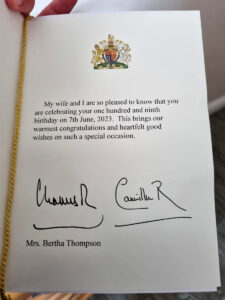 My wife and I are so pleased to know that you
are celebrating your one hundred and ninth
birthday on 7th June, 2023. This brings our
warmest congratulations and heartfelt good
wishes on such a special occasion.
Charles R Camilla R
Mrs. Bertha Thompson